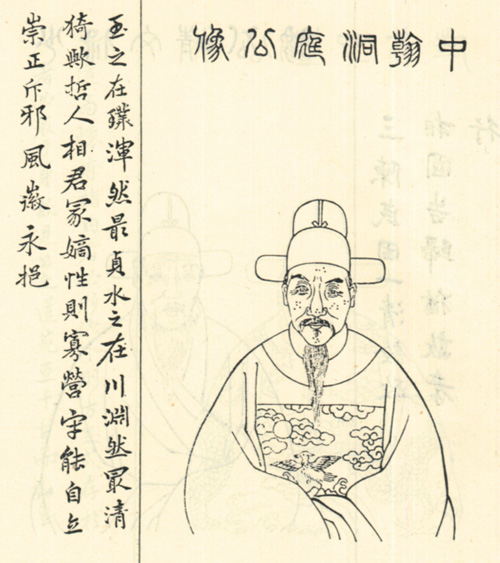 中翰洞庭公像
玉之在璞渾然最貞水之在川淵然最清
猗歟哲人相君冢嫡性則寡營守能自立
崇正斥邪風徽永挹